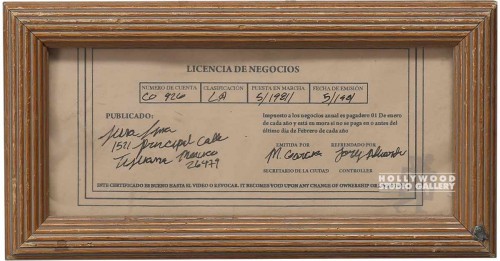 LICENCIA DE NEGOCIOS
NUMERO DE CUENTA CLASIFICACION PUESTA EN MARCHA FECHA DE EMISION
CO 926 5/1981 5/1981
PUBLICADO:
1521 Principal Calle
Tijuana Mexico
26479
Impuesto a los negocios anual es pagadero 01 De enero
de cada año y está en mora si no se paga en o antes del
último día de Febrero de cada año
EMITIDA POR REFRENDADO POR
M Garcia
SECRETARIO DE LA CIUDAD CONTROLLER
ESTE CERTIFICADO ES BUENO HASTA EL VIDEO O REVOCAR. IT BECOMES VOID UPON ANY CHANGE OF OWNERSHIP OR
HOLLYWOOD
STUDIO GALLERY